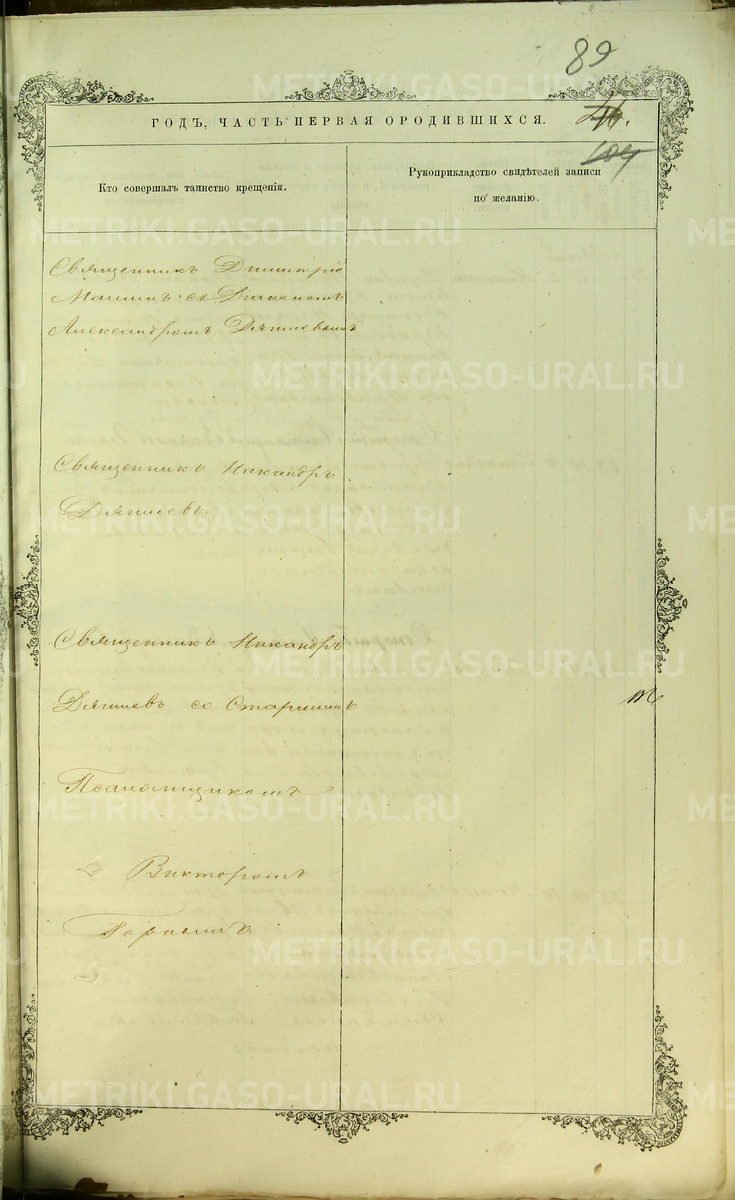 89
ГОДЪ, ЧАСТЬ ПЕРВАЯ ОРОДИВШИХСЯ.
Кто совершалъ таинство крещенія.
Рукоприкладство свидѣтелей записи
по желанію.
Священникъ Димитрій
съ Діакономъ
Александромъ Дягилевымъ
Священникъ Никандръ
Дягилевъ.
Священникъ Никандръ
Дягилевъ со Старшимъ
Псаломщикомъ
Викторомъ
METRIKI.GASO-URAL.RU